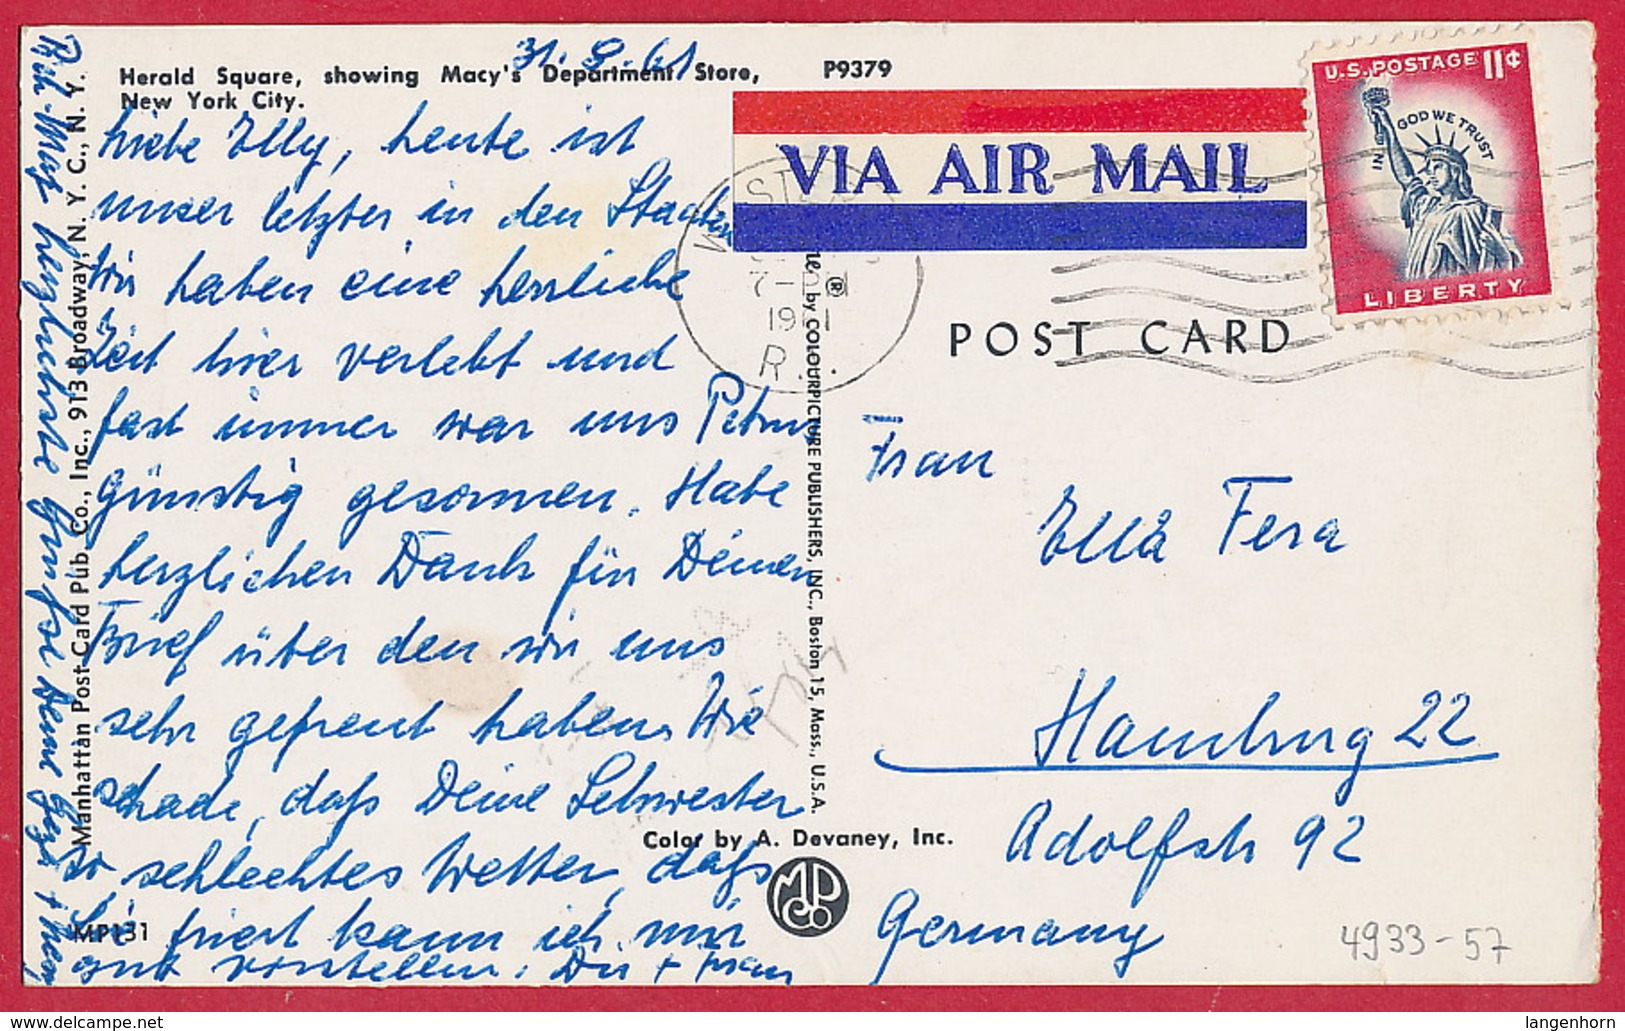 Herald Square, showing Macy's Department Store,
New York City.
P9379
31.8.61
Liebe Elly, heute ist
unser letzter in den Staaten
Wir haben eine herrliche
Zeit hier verlebt und
fast immer war uns Petrus
günstig gesonnen. Habe
herzlichen Dank für Deinen
Brief über den wir uns
sehr gefreut haben. Wie
schade, daß Deine Schwester
so schlechtes Wetter, daß
Sie friert kann ich mir
gut vorstellen. Dir +
herzlichste Grüße Deine
Manhattan Post Card Pub. Co., Inc., 913 Broadway, N. Y. C., N. Y.
MP131
VIA AIR MAIL
U.S. POSTAGE 11¢
IN GOD WE TRUST
LIBERTY
7-
19
R.
POST CARD
by COLOURPICTURE PUBLISHERS, INC., Boston 15, Mass., U.S.A.
®
Frau
Ella Fera
Hamburg 22
Adolfstr 92
Germany
Color by A. Devaney, Inc.
MPCo
4933-57
langenhorn